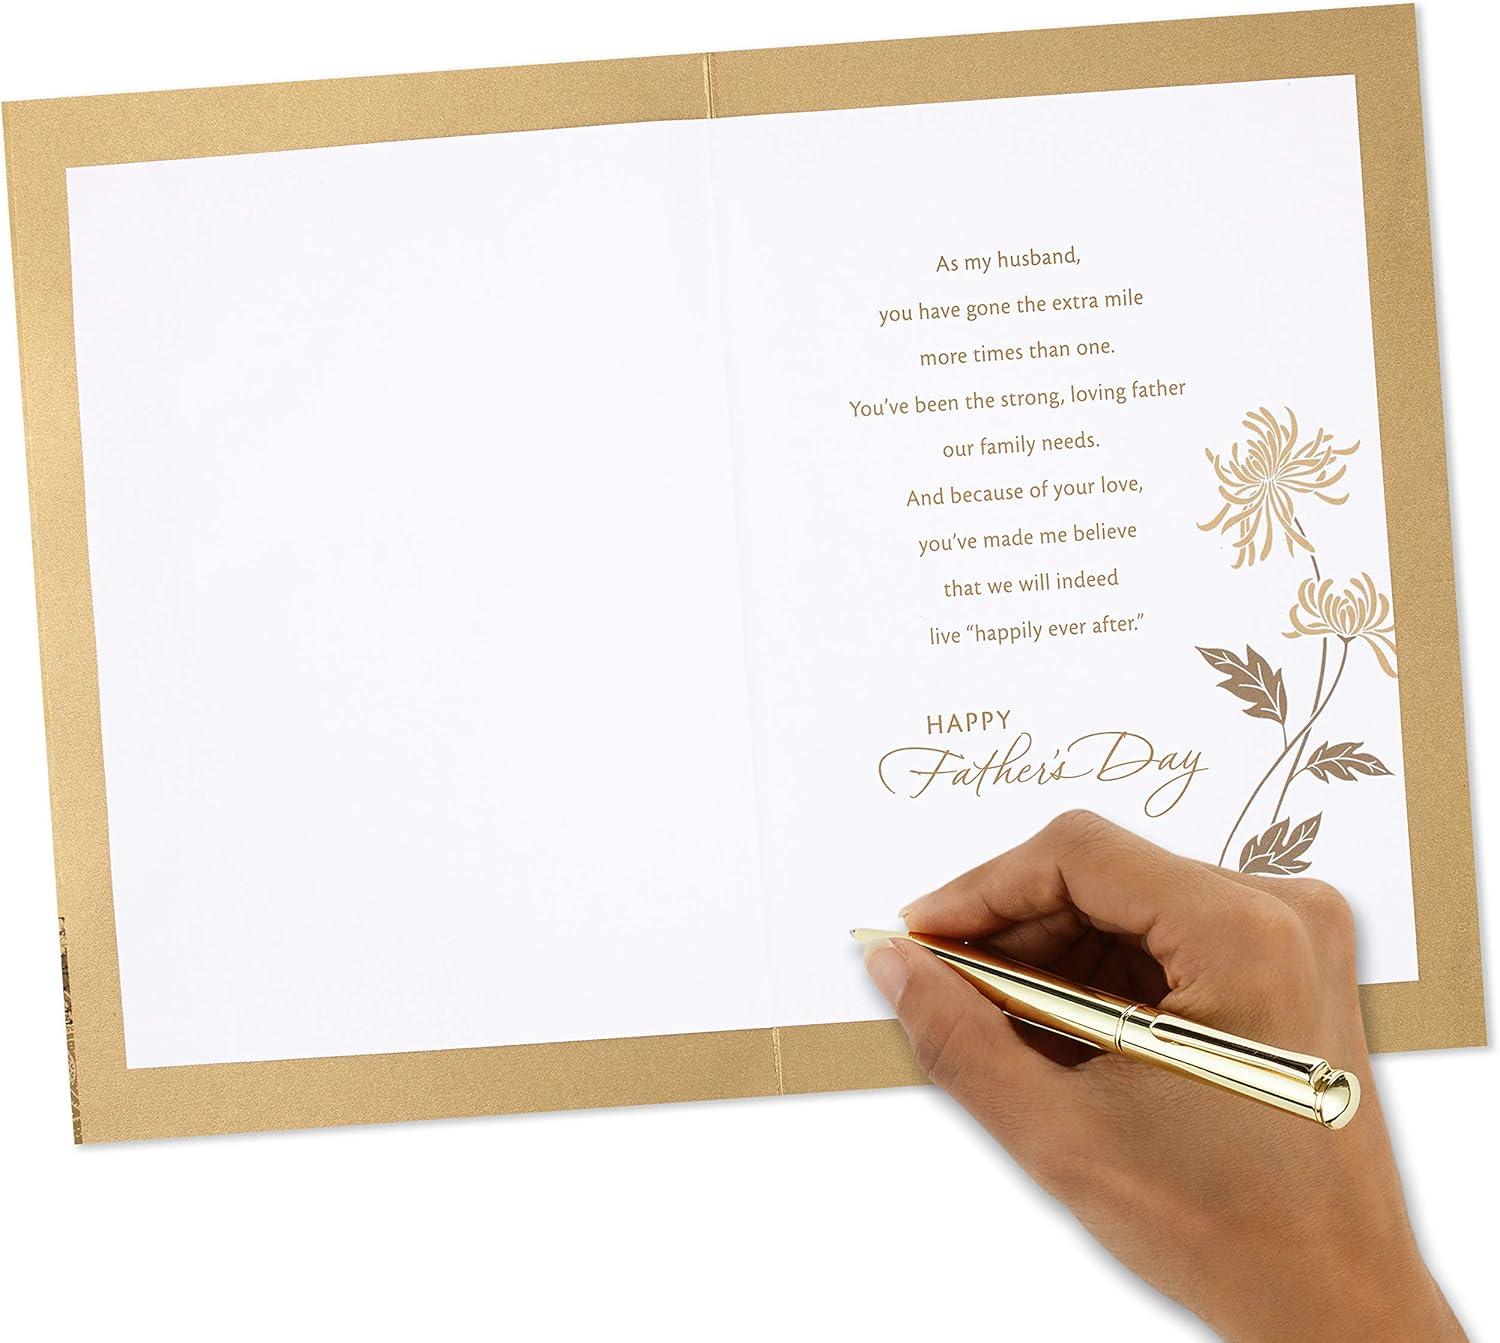 As my husband,
you have gone the extra mile
more times than one.
You’ve been the strong, loving father
our family needs.
And because of your love,
you’ve made me believe
that we will indeed
live “happily ever after.”
HAPPY
Father’s Day